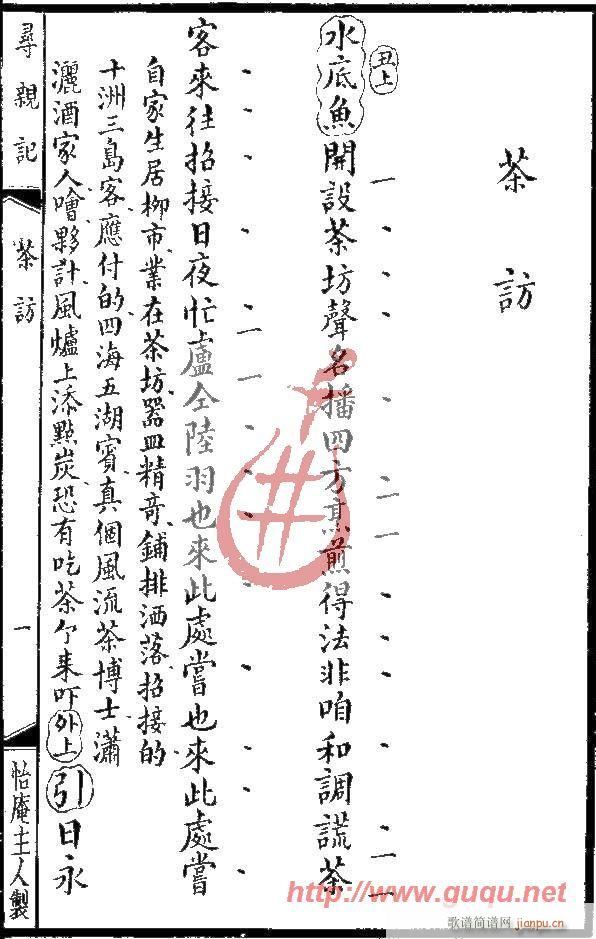 茶訪
丑上
水底魚開設茶坊聲名播四方煎得法非咱和調謊茶
客來往招接日夜忙盧仝陸羽也來此處嘗也來此處嘗
自家生居柳市業在茶坊器皿精奇鋪排洒落招接的
十洲三島客應付的四海五湖賓真個風流茶博士瀟
灑酒家人噲夥計風爐上添點炭恐有吃茶个來吓外上引日永
尋親記
茶訪
一
怡庵主人製
http://www.guqu.net
歌谱简谱网
jianpu.cn